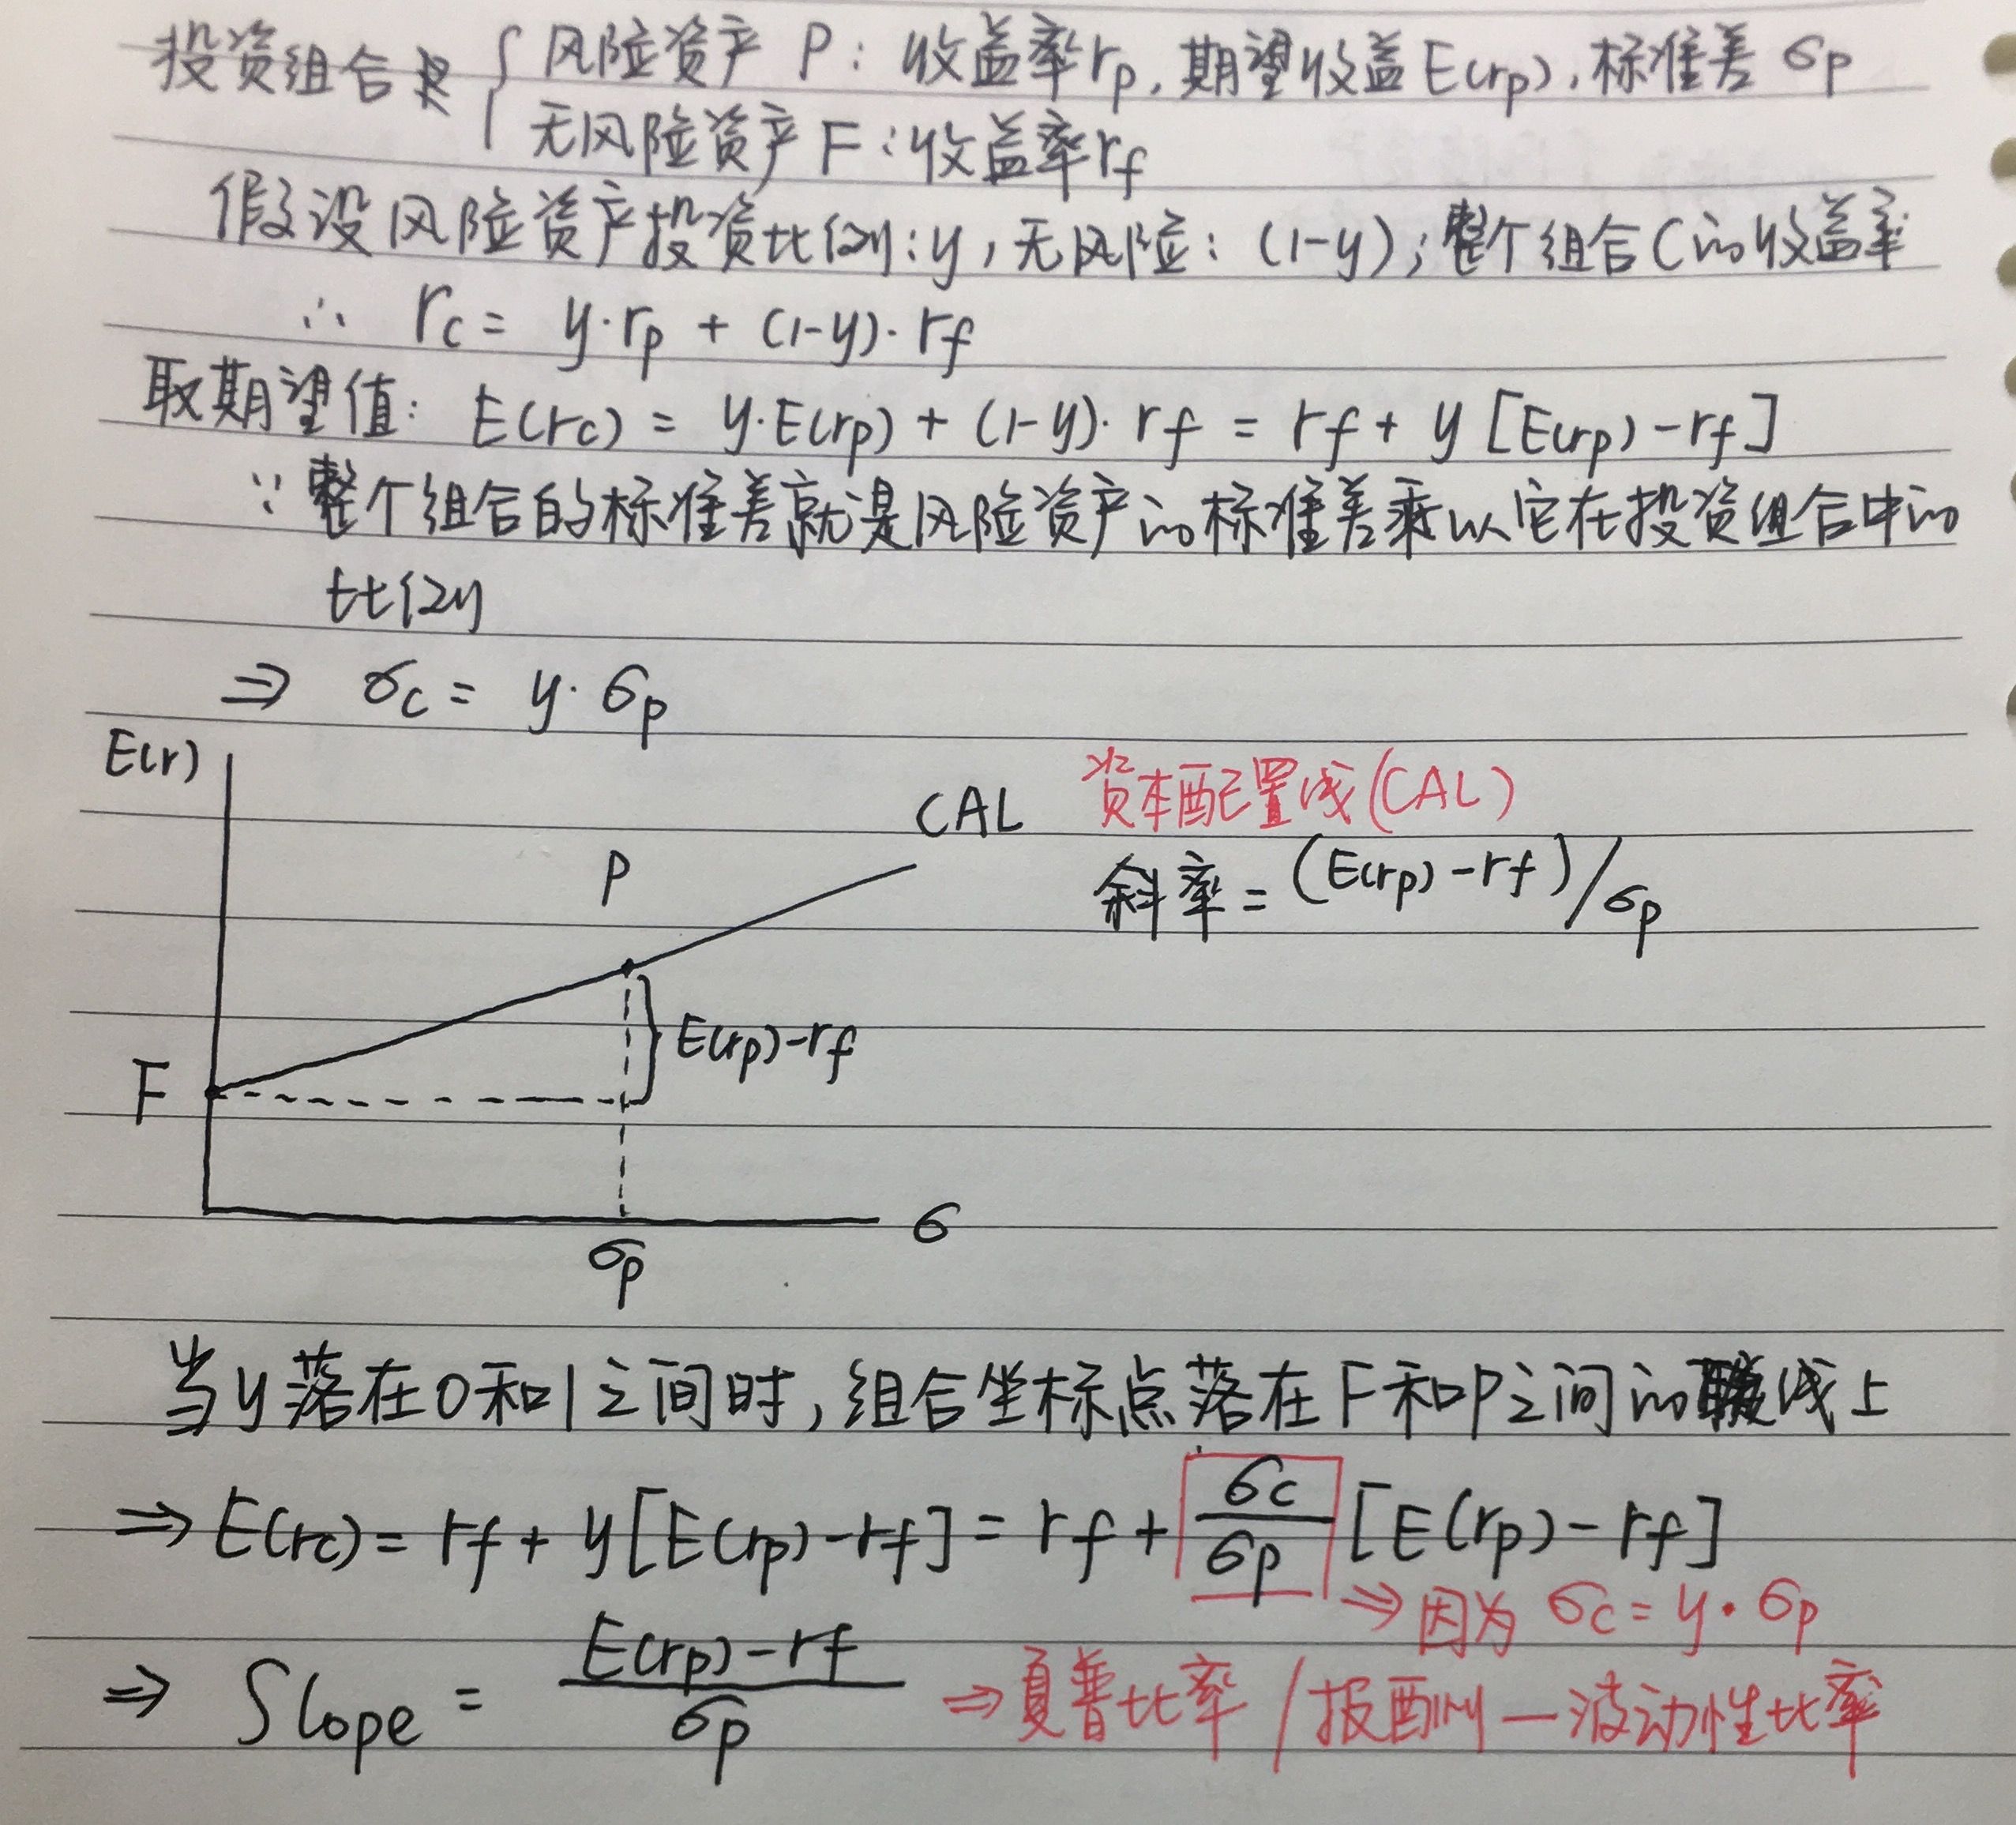 投资组合 { 风险资产 P: 收益率rp, 期望收益E(rp), 标准差 σp
无风险资产F: 收益率rf
假设风险资产投资比例: y, 无风险: (1-y); 整个组合C的收益率
∴ rc = y·rp + (1-y)·rf
取期望值: E(rc) = y·E(rp) + (1-y)·rf = rf + y [E(rp)-rf]
∵ 整个组合的标准差就是风险资产的标准差乘以它在投资组合中的
比例
⇒ σc = y·σp
E(r)
CAL 资本配置线(CAL)
P
斜率 = (E(rp)-rf)/σp
E(rp)-rf
F
σ
σp
当y落在0和1之间时, 组合坐标点落在F和P之间的线上
⇒ E(rc) = rf + y[E(rp)-rf] = rf + σc/σp [E(rp)-rf]
⇒ 因为 σc = y·σp
⇒ Slope = E(rp)-rf/σp ⇒ 夏普比率 / 报酬—波动性比率